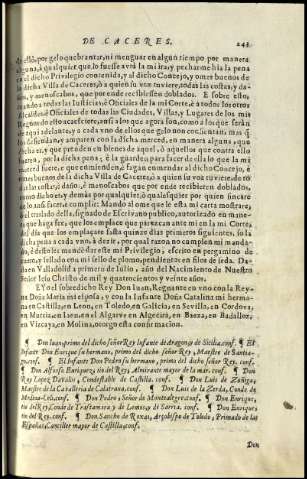 DE CACERES. 243
de ello, por gelo quebrantar, ni menguar en algun tiempo por manera
alguna, à qualquier que lo fuesse avrà la mi ira, y pecharme hia la pena
en el dicho Privilegio contenida, y al dicho Concejo, y omes buenos de
la dicha Villa de Caceres, ò a quien su voz tuviere, todas las costas, y da-
ños, y menoscabos, que por ende recibiessen doblados. E sobre esto,
mando a todas las Justicias, è Oficiales de la mi Corte, è a todos los otros
Alcaldes, è Oficiales de todas las Ciudades, Villas, y Lugares de los mis
Reynos do esto acaeciere, assi a los que agora son, como a los que seràn
de aqui adelante, y a cada vno de ellos que gelo non consientan, mas que
los defiendan, y amparen con la dicha merced, en manera alguna, que
que prenden en bienes de aquel, ò aquellos que contra ello
fueren, por la dicha pena, è la guarden para facer de ella lo que la mi
merced fuere, è que emienden, è fagan emendar al dicho Concejo, è
omes buenos de la dicha Villa de Caceres, ò a quien su voz tuviere de to-
das las costas, è daños, è menoscabos que por ende recibieren doblados,
como dicho es, y demàs por qualquier, ò qualesquier por quien fincare
de lo assi facer, è cumplir: Mando al ome que les esta mi carta mostrare,
ò el traslado della, signado de Escrivano publico, autorizado en mane-
ra que haga fee, que los emplace que parezcan ante mi en la mi Corte,
del dia que los emplaçare fasta quinze dias primeros siguientes, so la
dicha pena a cada vno, à dezir, por qual razon no cumplen mi manda-
do, è desto les mandè dar este mi Privilegio, escrito en pergamino de
cuero, y sellado con mi sello de plomo, pendiente en filos de seda. Da-
da en Valladolid a primero de Iulio, año del Nacimiento de Nuestro
Señor Iesu Christo de mil y quatrocientos y veinte años.
EYo el sobredicho Rey Don Iuan, Regnante en vno con la Rey-
na Doña Maria mi esposa, y con la Infante Doña Catalina mi herma-
na en Castilla, en Leon, en Toledo, en Galicia, en Sevilla, en Cordova,
en Murcia, en Iaen, en el Algarve en Algezira, en Baeza, en Badalloz,
en Vizcaya, en Molina, otorgo esta confirmacion.
¶ Don Iuan, primo del dicho señor Rey Infante de Aragon, y de Sicilia. conf. ¶ El
Infante Don Enrique su hermano, primo del dicho señor Rey, Maestre de Santia-
go. conf. ¶ El Infante Don Pedro su hermano, primo del dicho señor Rey. conf.
¶ Don Alfonso Enriquez, tio del Rey, Almirante mayor de la mar. conf. ¶ Don
Ruy Lopez Davalos, Condestable de Castilla. conf. ¶ Don Luis de Guzman,
Maestre de la Cavalleria de Calatrava. conf. ¶ Don Luis de la Zerda, Conde de
Medina-Celi. conf. ¶ Don Pedro, Señor de Montealegre. conf. ¶ Don Enrique,
tio del Rey, Conde de Trastamara, y de Lemos, y de Sarria. conf. ¶ Don Enrique,
tio del Rey. conf. ¶ Don Sancho de Roxas, Arçobispo de Toledo, Primado de las
Españas, Canciller mayor de Castilla. conf.
Don